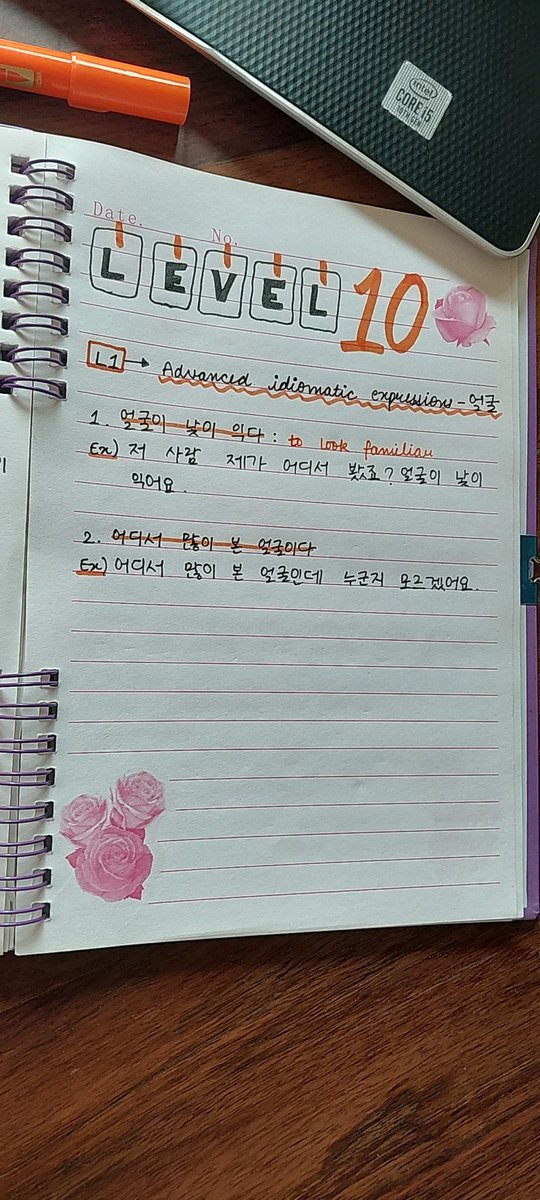 intel
CORE i5
10TH GEN
Date.
No.
LEVEL 10
L1 → Advanced idiomatic expression - 얼굴
1. 얼굴이 낯이 익다 : to look familiar
Ex) 저 사람 제가 어디서 봤죠? 얼굴이 낯이
익어요.
2. 어디서 많이 본 얼굴이다
Ex) 어디서 많이 본 얼굴인데 누군지 모르겠어요.